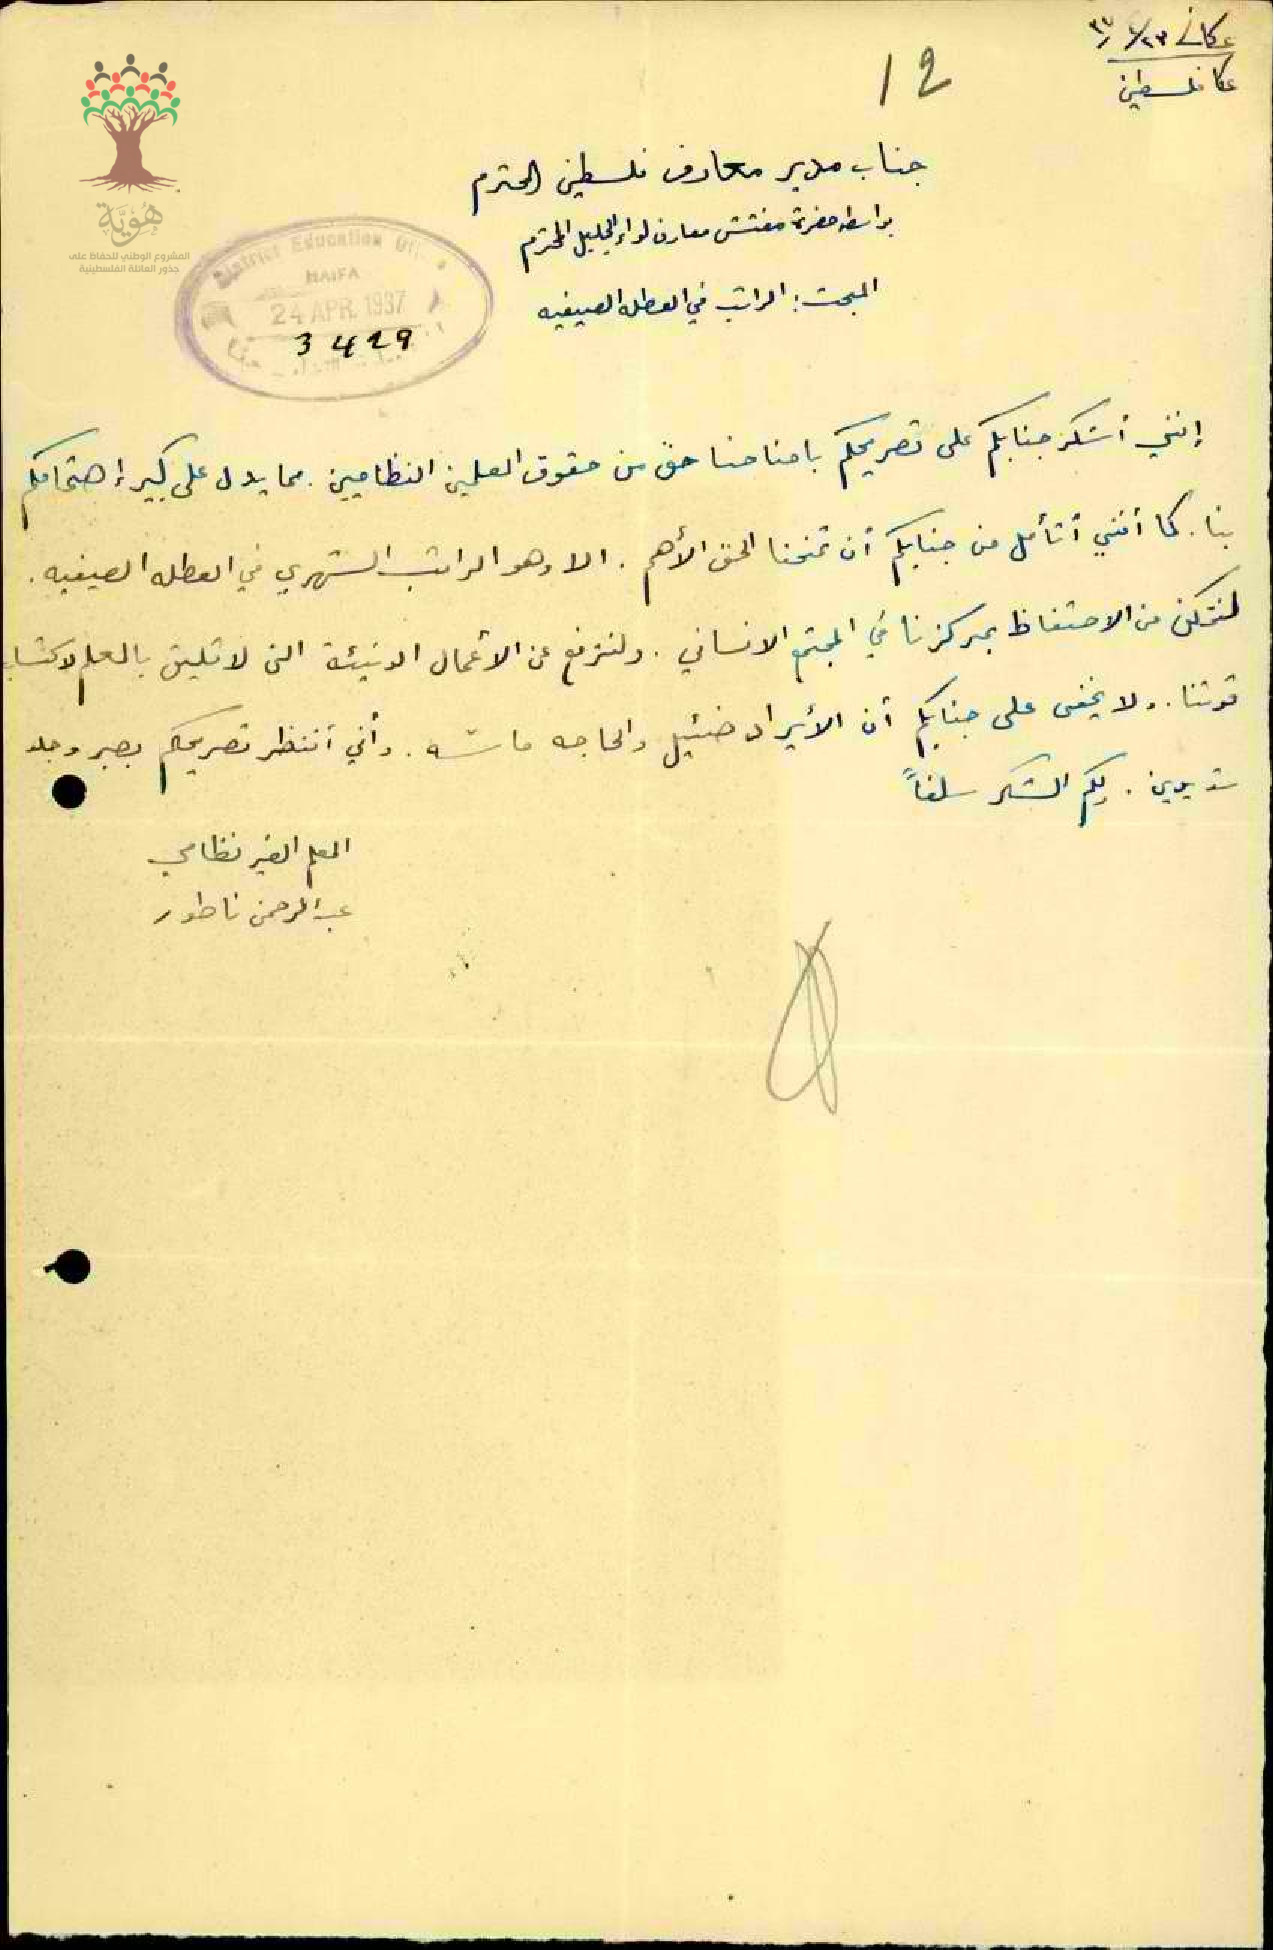 عكا في ٢٣/٤/٣٧
عكا فلسطين
12
جناب مدير معارف فلسطين المحترم
بواسطة حضرة مفتش معارف لواء الجليل المحترم
المبحث: الراتب في العطله الصيفيه
هُوِيَّة
المشروع الوطني للحفاظ على
جذور العائلة الفلسطينية
District Education
HAIFA
24 APR. 1937
3429
إنني أشكر جنابكم على تصريحكم بامناحنا حق من حقوق المعلمين النظاميين. مما يدل على كبير إهتمامكم
بنا. كما أنني أتأمل من جنابكم أن تمنحنا الحق الأهم. الا وهو الراتب الشهري في العطله الصيفيه.
لنتمكن من الاحتفاظ بمركزنا في المجتمع الانساني. ولنترفع عن الأعمال الدنيئة التي لا تليق بالمعلم لاكتساب
قوتنا. ولا يخفى على جنابكم أن الأيراد ضئيل والحاجه ماسه. وأني أنتظر تصريحكم بصبر وجلد
شديدين. ولكم الشكر سلفاً
المعلم الغير نظامي
عبد الرحمن ناطور